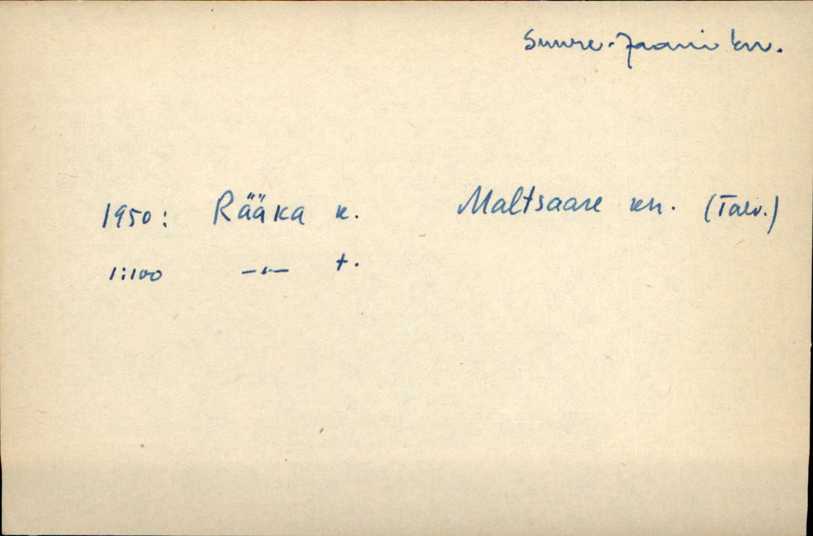 Suure-Jaani kn.
1950: Rääka k. Maltsaare kn. (Talv.)
1:100 —"— t.